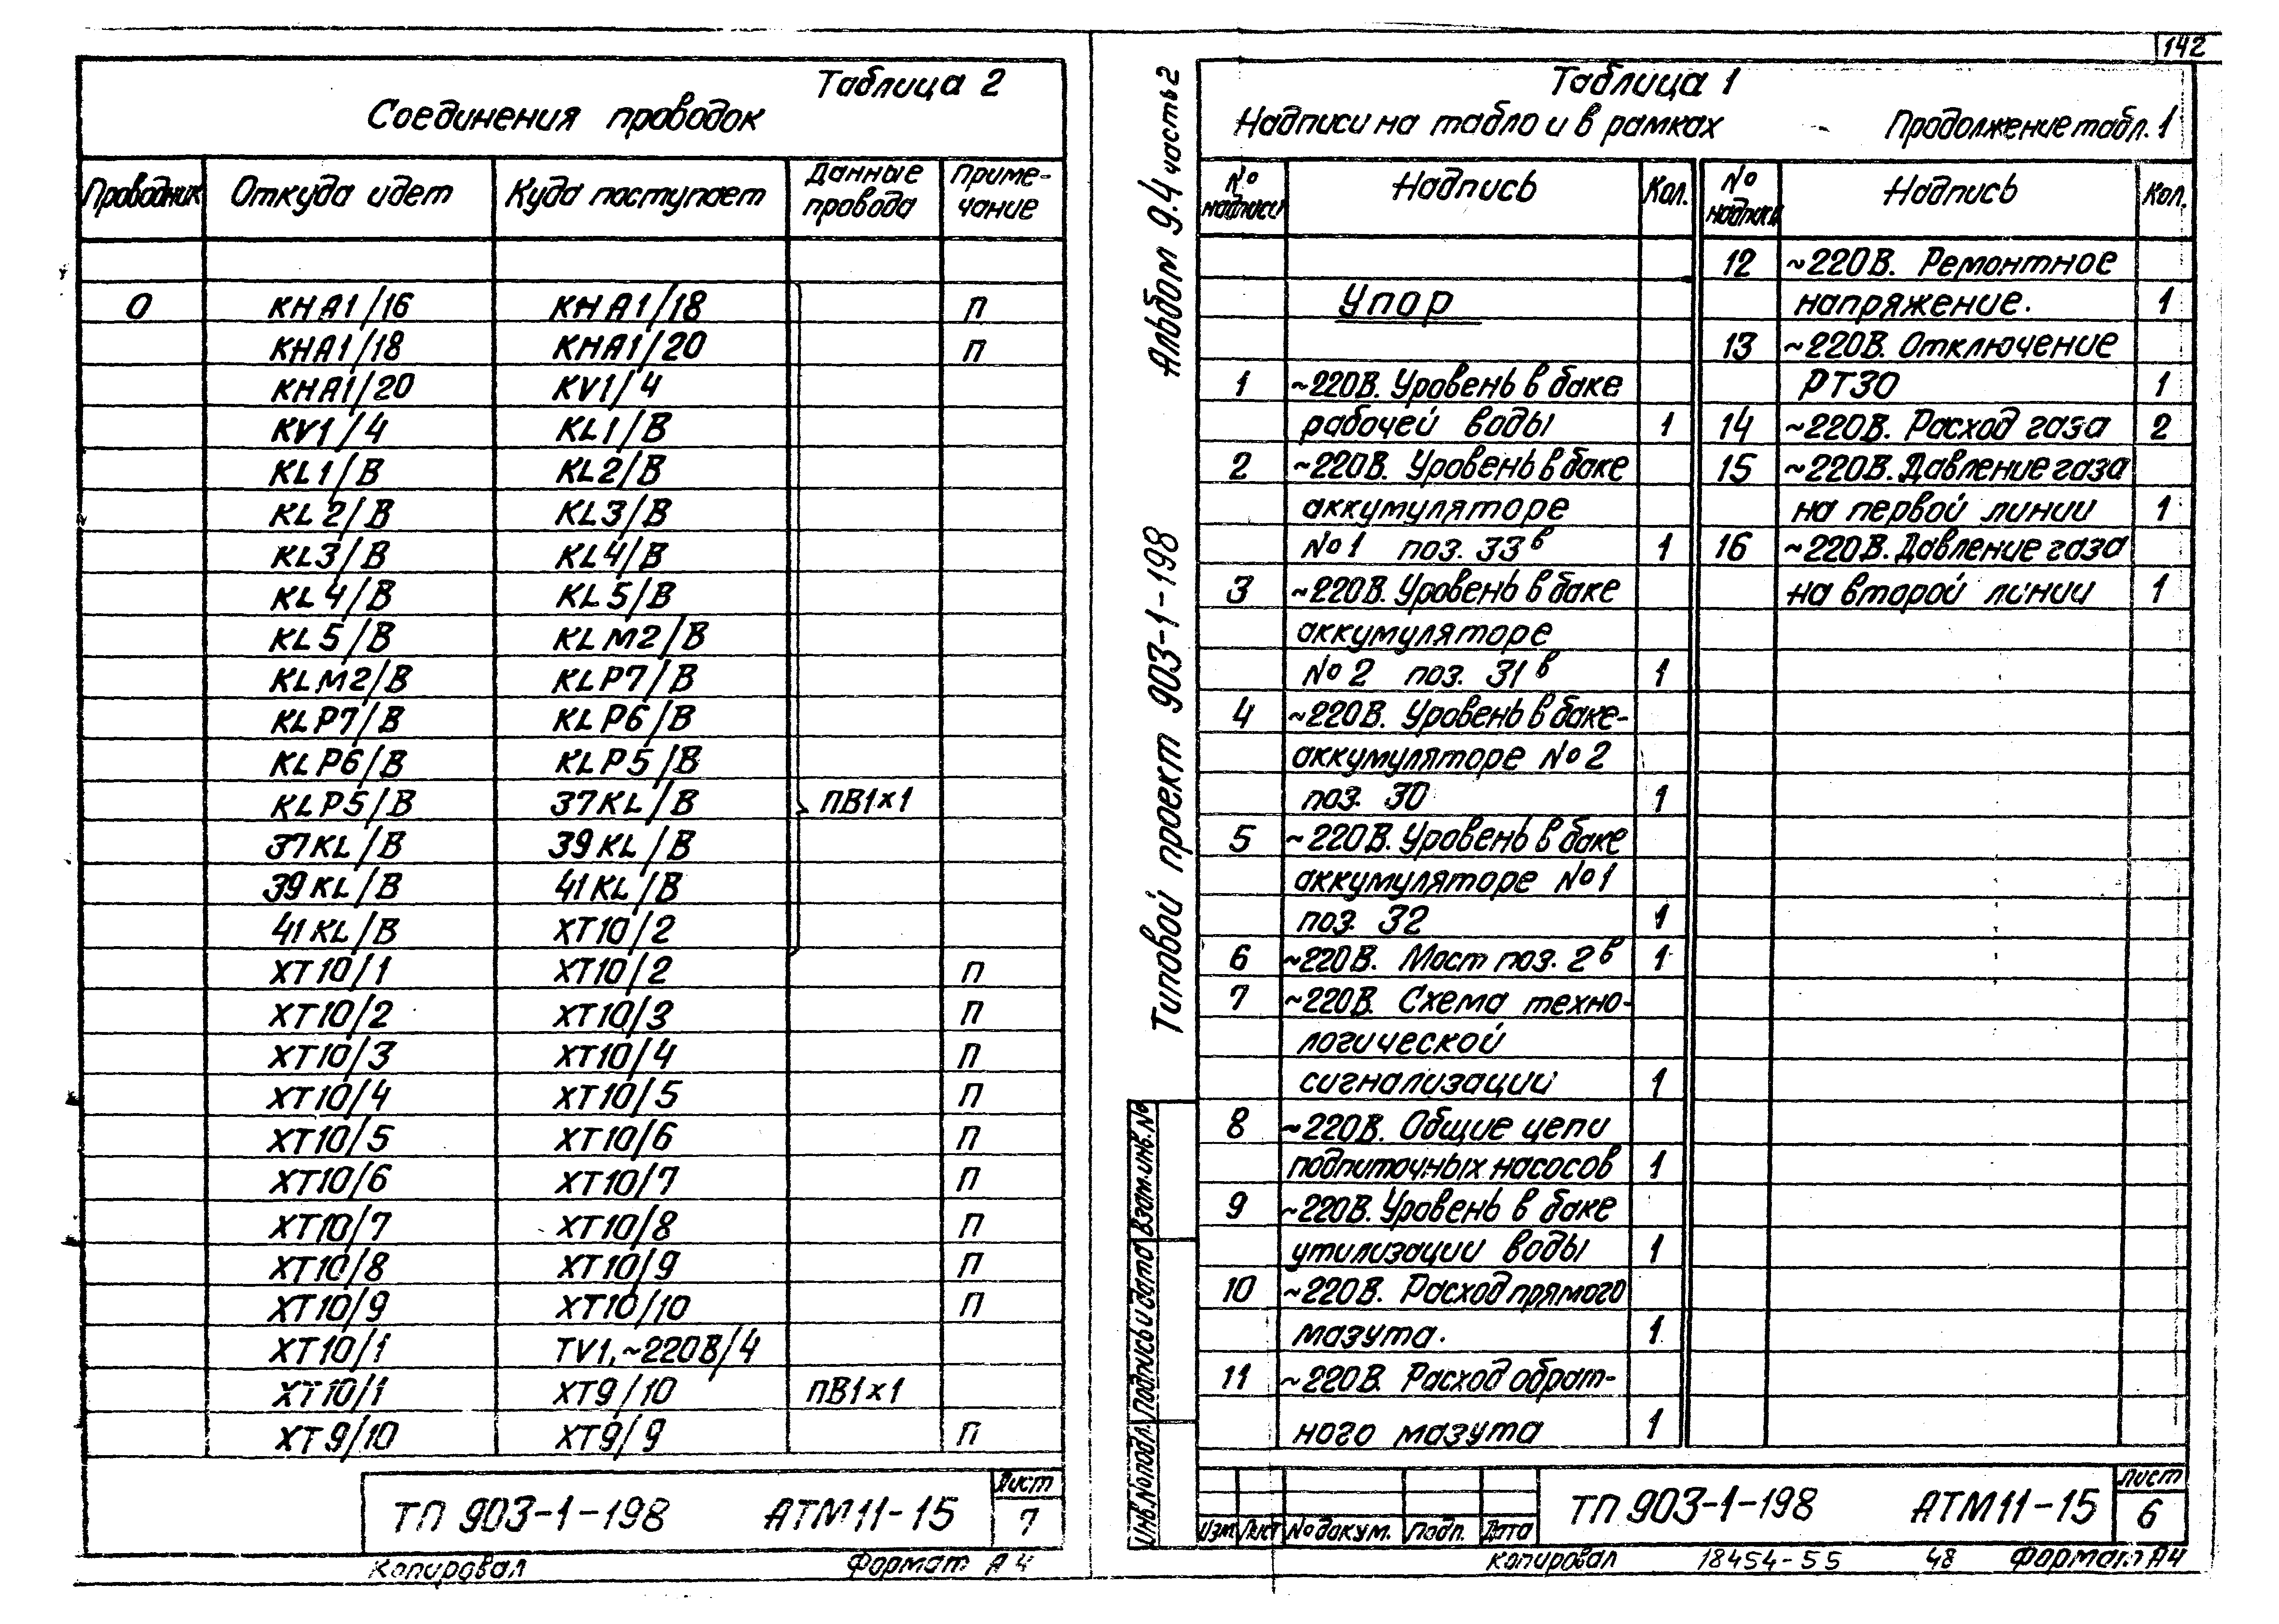 142
Таблица 2
Соединения проводок
Проводник Откуда идет Куда поступает Данные провода Примечание
0 КНА1/16 КНА1/18 П
КНА1/18 КНА1/20 П
КНА1/20 KV1/4
KV1/4 KL1/В
KL1/В KL2/В
KL2/В KL3/В
KL3/В KL4/В
KL4/В KL5/В
KL5/В KLM2/В
KLM2/В KLP7/В
KLP7/В KLP6/В
KLP6/В KLP5/В
KLP5/В 37KL/В ПВ1х1
37KL/В 39KL/В
39KL/В 41KL/В
41KL/В ХТ10/2
ХТ10/1 ХТ10/2 П
ХТ10/2 ХТ10/3 П
ХТ10/3 ХТ10/4 П
ХТ10/4 ХТ10/5 П
ХТ10/5 ХТ10/6 П
ХТ10/6 ХТ10/7 П
ХТ10/7 ХТ10/8 П
ХТ10/8 ХТ10/9 П
ХТ10/9 ХТ10/10 П
ХТ10/1 TV1,~220В/4
ХТ10/1 ХТ9/10 ПВ1х1
ХТ9/10 ХТ9/9 П
ТП 903-1-198 АТМ11-15 Лист 7
Копировал Формат А4
Альбом 9.4 часть 2
Типовой проект 903-1-198
Взам.инв.№
Подпись и дата
Инв.№ подл.
Таблица 1
Надписи на табло и в рамках
№ надписи Надпись Кол.
Упор
1 ~220В. Уровень в баке
рабочей воды 1
2 ~220В. Уровень в баке
аккумуляторе
№1 поз. 33в 1
3 ~220В. Уровень в баке
аккумуляторе
№2 поз. 31в 1
4 ~220В. Уровень в баке-
аккумуляторе №2
поз. 30 1
5 ~220В. Уровень в баке
аккумуляторе №1
поз. 32 1
6 ~220В. Мост поз. 2в 1
7 ~220В. Схема техно-
логической
сигнализации 1
8 ~220В. Общие цепи
подпиточных насосов 1
9 ~220В. Уровень в баке
утилизации воды 1
10 ~220В. Расход прямого
мазута. 1
11 ~220В. Расход обрат-
ного мазута 1
Продолжение табл. 1
№ надписи Надпись Кол.
12 ~220В. Ремонтное
напряжение. 1
13 ~220В. Отключение
РТ30 1
14 ~220В. Расход газа 2
15 ~220В. Давление газа
на первой линии 1
16 ~220В. Давление газа
на второй линии 1
Изм Лист № докум. Подп. Дата
ТП 903-1-198 АТМ11-15 Лист 6
Копировал 18454-55 48 Формат А4